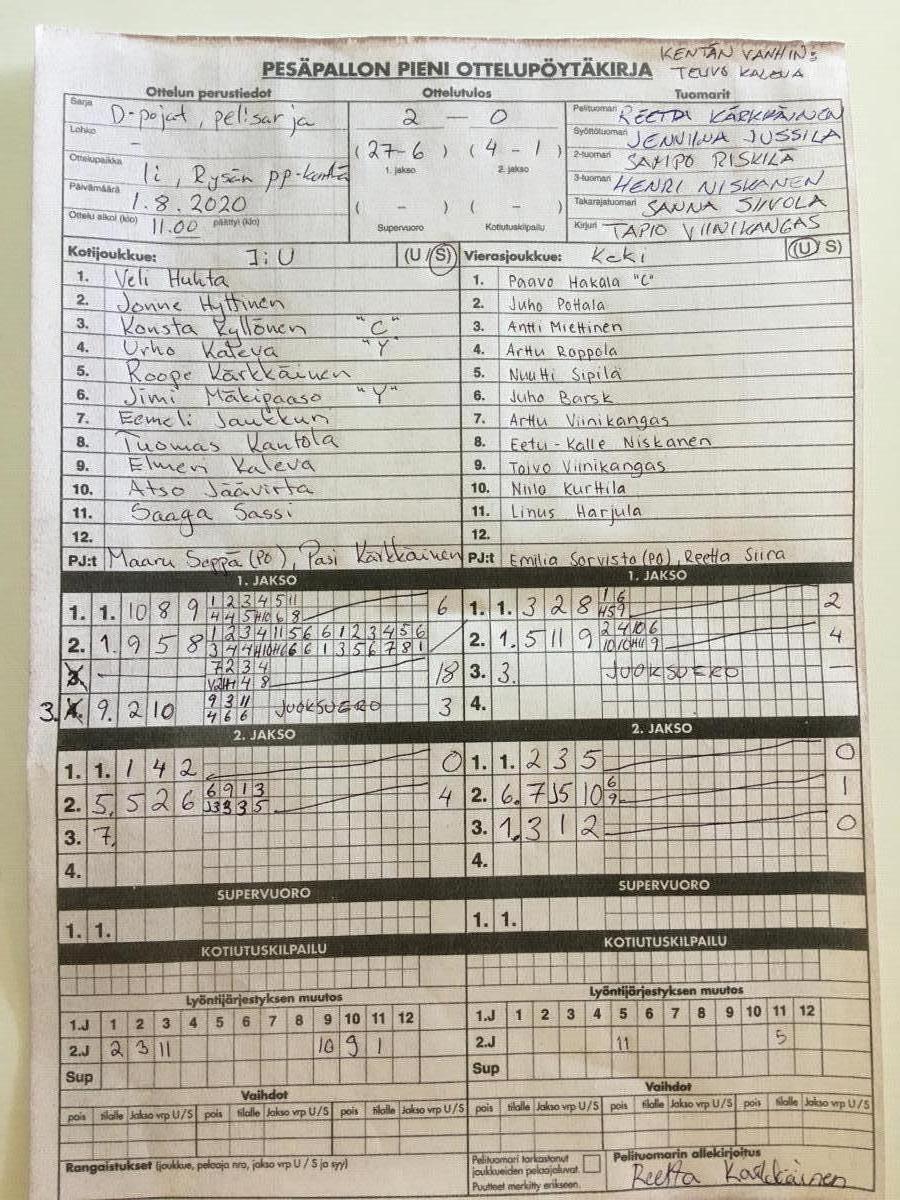 KENTÄN VANHIN:
TEUVO KALEVA
PESÄPALLON PIENI OTTELUPÖYTÄKIRJA
Ottelun perustiedot
Sarja D-pojat, pelisarja
Lohko -
Ottelupaikka Ii, Rysän pp-kenttä
Päivämäärä 1.8.2020
Ottelu alkoi (klo) 11.00 päättyi (klo)
Ottelutulos
2 — 0
(27-6) (4-1)
1. jakso 2. jakso
( - ) ( - )
Supervuoro Kotiutuskilpailu
Tuomarit
Pelituomari REETTA KÄRKKÄINEN
Syöttötuomari JENNIINA JUSSILA
2-tuomari SAMPO RISKILÄ
3-tuomari HENRI NISKANEN
Takarajatuomari SANNA SIIVOLA
Kirjuri TAPIO VIINIKANGAS
Kotijoukkue: IiU (U/S)
1. Veli Huhta
2. Jonne Hyttinen
3. Konsta Kyllönen "C"
4. Urho Kaleva "Y"
5. Roope Kärkkäinen
6. Jimi Mäkipaaso "Y"
7. Eemeli Jaukkuri
8. Tuomas Kantola
9. Elmeri Kaleva
10. Atso Jäävirta
11. Saaga Sassi
12.
PJ:t Maaru Seppä (PO), Pasi Kärkkäinen
Vierasjoukkue: KeKi (U/S)
1. Paavo Hakala "C"
2. Juho Pottala
3. Antti Miettinen
4. Arttu Roppola
5. Nuutti Sipilä
6. Juho Barsk
7. Arttu Viinikangas
8. Eetu-Kalle Niskanen
9. Toivo Viinikangas
10. Niilo Kurttila
11. Linus Harjula
12.
PJ:t Emilia Sorvisto (PO), Reetta Siira
1. JAKSO
1. 1. 10 8 9 6
2. 1. 9 5 8
18
3. 9. 2 10 JUOKSUERO 3
2. JAKSO
1. 1. 1 4 2 0
2. 5. 5 2 6 4
3. 7.
4.
SUPERVUORO
1. 1.
KOTIUTUSKILPAILU
1. JAKSO
1. 1. 3 2 8 2
2. 1. 5 11 9 4
3. 3. JUOKSUERO —
4.
2. JAKSO
1. 1. 2 3 5 0
2. 6. 7 5 10 1
3. 1. 3 1 2 0
4.
SUPERVUORO
1. 1.
KOTIUTUSKILPAILU
Lyöntijärjestyksen muutos
1.J 1 2 3 4 5 6 7 8 9 10 11 12
2.J 2 3 11 10 9 1
Sup
Vaihdot
pois tilalle Jakso vrp U/S pois tilalle Jakso vrp U/S pois tilalle Jakso vrp U/S
Lyöntijärjestyksen muutos
1.J 1 2 3 4 5 6 7 8 9 10 11 12
2.J 11 5
Sup
Vaihdot
pois tilalle Jakso vrp U/S pois tilalle Jakso vrp U/S pois tilalle Jakso vrp U/S
Rangaistukset (joukkue, pelaaja nro, jakso vrp U / S ja syy)
Pelituomari tarkastanut
joukkueiden pelaajaluvat.
Puutteet merkitty erikseen.
Pelituomarin allekirjoitus
Reetta Kärkkäinen